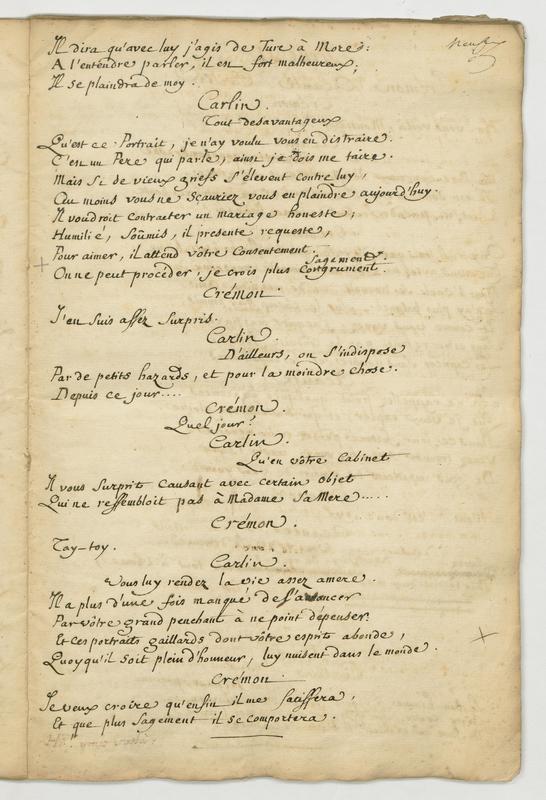 Il dira qu'avec luy j'agis de Turc à Mores:
A l'entendre parler, il est fort malheureux;
Il se plaindra de moy.
Carlin.
Tout desavantageux
Qu'est ce Portrait, je n'ay voulu vous en distraire.
C'est un Pere qui parle, ainsi je dois me taire.
Mais Si de vieux griefs S'élevent contre luy,
Au moins vous ne Scauriez vous en plaindre aujourd'huy.
Il voudroit Contracter un mariage honeste;
Humilié, Soûmis, il presente requeste,
Pour aimer, il attend vôtre Consentement.
Sagement
On ne peut procéder, je crois plus Congrument.
Crémon.
J'en Suis assez Surpris.
Carlin.
D'ailleurs, on S'indispose
Par de petits hazards, et pour la moindre chose.
Depuis ce jour....
Crémon.
Quel jour?
Carlin.
Qu'en vôtre Cabinet
Il vous Surprit Causant avec certain objet
Qui ne ressembloit pas à Madame Sa Mere.....
Crémon.
Tay-toy.
Carlin.
Vous luy rendez la vie assez amere.
Il a plus d'une fois manqué de S'avancer
Par vôtre grand penchant à ne point dépenser.
Et ces portraits gaillards dont vôtre esprit abonde,
Quoy qu'il Soit plein d'honneur, luy nuisent dans le monde.
Crémon.
Je veux croire qu'enfin il me Satisfera,
Et que plus Sagement il se comportera.